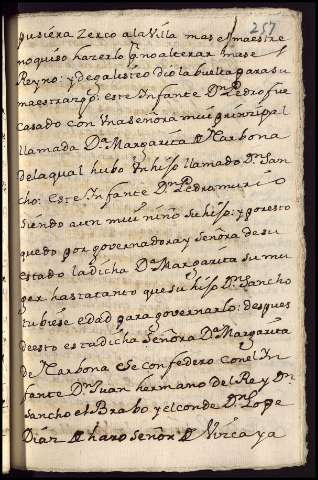 257
pusiera Zerco a la Villa mas el maestre
no quiso hazerlo por no alterar mas el
Reyno: y de galisteo dio la buelta para su
maestrazgo: este Infante Dn. Pedro fue
casado con Una señora mui prinçipal
llamada Da. Margarita de Narbona
de la qual hubo Un hijo llamado Dn. San
cho: Este Infante Dn. Pedro murio
siendo aun mui niño su hijo: y por esto
quedo por governadora y señora de su
estado la dicha Da. Margarita su mu
ger hasta tanto que su hijo Dn. Sancho
tubiese edad para governarlo: despues
de esto esta dicha señora Da. Margarita
de Narbona se confedero con el In
fante Dn. Juan hermano del Rey Dn.
sancho el Brabo y el conde Dn. Lope
Diaz de haro señor de Vizcaya